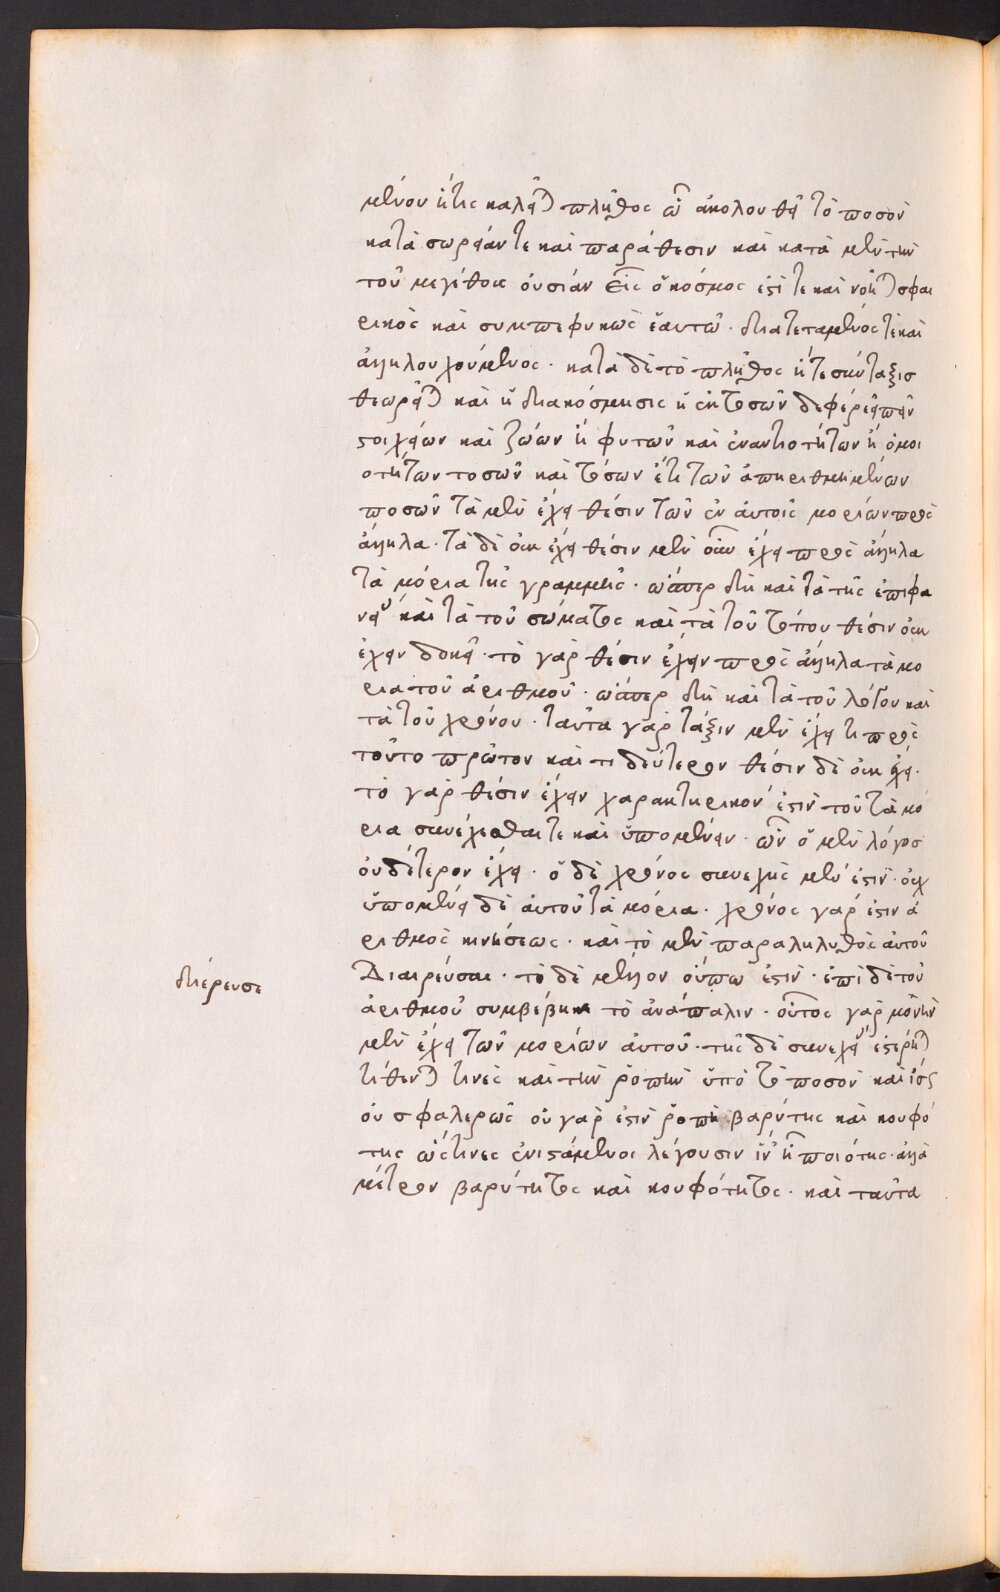 μένον ἥτις καλεῖται πλῆθος ᾧ ἀκολουθεῖ τὸ ποσὸν
κατὰ σωρείαν τε καὶ παράθεσιν καὶ κατὰ μὲν τὴν
τοῦ μεγέθους οὐσίαν εἷς ὁ κόσμος ἐστί τε καὶ νοεῖται σφαι
ρικὸς καὶ συμπεφυκὼς ἑαυτῷ · διατεταμένος τε καὶ
ἀλληλουχούμενος · κατὰ δὲ τὸ πλῆθος ἥ τε σύνταξις
θεωρεῖται καὶ ἡ διακόσμησις ἡ ἐκ τοσῶν δε φέρε εἰπεῖν
στοιχείων καὶ ζώων ἢ φυτῶν καὶ ἐναντιοτήτων ἢ ὁμοι
οτήτων τοσῶν καὶ τόσων ἔτι τῶν ἀπηριθμημένων
ποσῶν τὰ μὲν ἔχει θέσιν τῶν ἐν αὐτοῖς μορίων πρὸς
ἄλληλα · τὰ δὲ οὐκ ἔχει θέσιν μὲν οὖν ἔχει πρὸς ἄλληλα
τὰ μόρια τῆς γραμμῆς · ὥσπερ δὴ καὶ τὰ τῆς ἐπιφα
νείας καὶ τὰ τοῦ σώματος καὶ τὰ τοῦ τόπου θέσιν οὐκ
ἔχειν δοκεῖ · τὸ γὰρ θέσιν ἔχειν πρὸς ἄλληλα τὰ μό
ρια τοῦ ἀριθμοῦ · ὥσπερ δὴ καὶ τὰ τοῦ λόγου καὶ
τὰ τοῦ χρόνου · ταῦτα γὰρ τάξιν μὲν ἔχει τι πρὸς
τοῦτο πρῶτον καί τι δεύτερον θέσιν δὲ οὐκ ἔχει ·
τὸ γὰρ θέσιν ἔχειν χαρακτηρικόν ἐστιν τοῦ τὰ μό
ρια συνέχεσθαί τε καὶ ὑπομένειν · ὧν ὁ μὲν λόγος
οὐδέτερον ἔχει · ὁ δὲ χρόνος συνεχὴς μέν ἐστιν · οὐχ
ὑπομένει δὲ αὐτοῦ τὰ μόρια · χρόνος γάρ ἐστιν ἀ
ριθμὸς κινήσεως · καὶ τὸ μὲν παραληλυθὸς αὐτοῦ
Διαιρεύσαι · τὸ δὲ μέλλον οὔπω ἐστὶν · ἐπὶ δὲ τοῦ
ἀριθμοῦ συμβέβηκε τὸ ἀνάπαλιν · οὗτος γὰρ μονὴν
μὲν ἔχει τῶν μορίων αὐτοῦ · τῆς δὲ συνεχείας ἐστέρηται
τίθενται τινὲς καὶ τὴν ῥοπὴν ὑπὸ τὸ ποσὸν καὶ ἴσως
οὐ σφαλερῶς οὐ γάρ ἐστιν ῥοπὴ βαρύτης καὶ κουφό
της ὥς τινες ἐνιστάμενοι λέγουσιν ἵν' ᾖ ποιότης · ἀλλὰ
μέτρον βαρύτητος καὶ κουφότητος · καὶ ταῦτα
διέρευσε